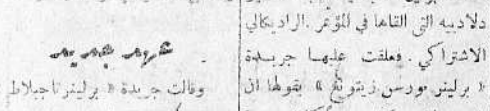 دلادييه التى القاها في المؤتمر الراديكالي
الاشتراكي. فعلقت عليها جريدة
« برلينر بورسن زيتونغ » بقولها ان
عهد جديد
وقالت جريدة « برلينر تاجبلاط